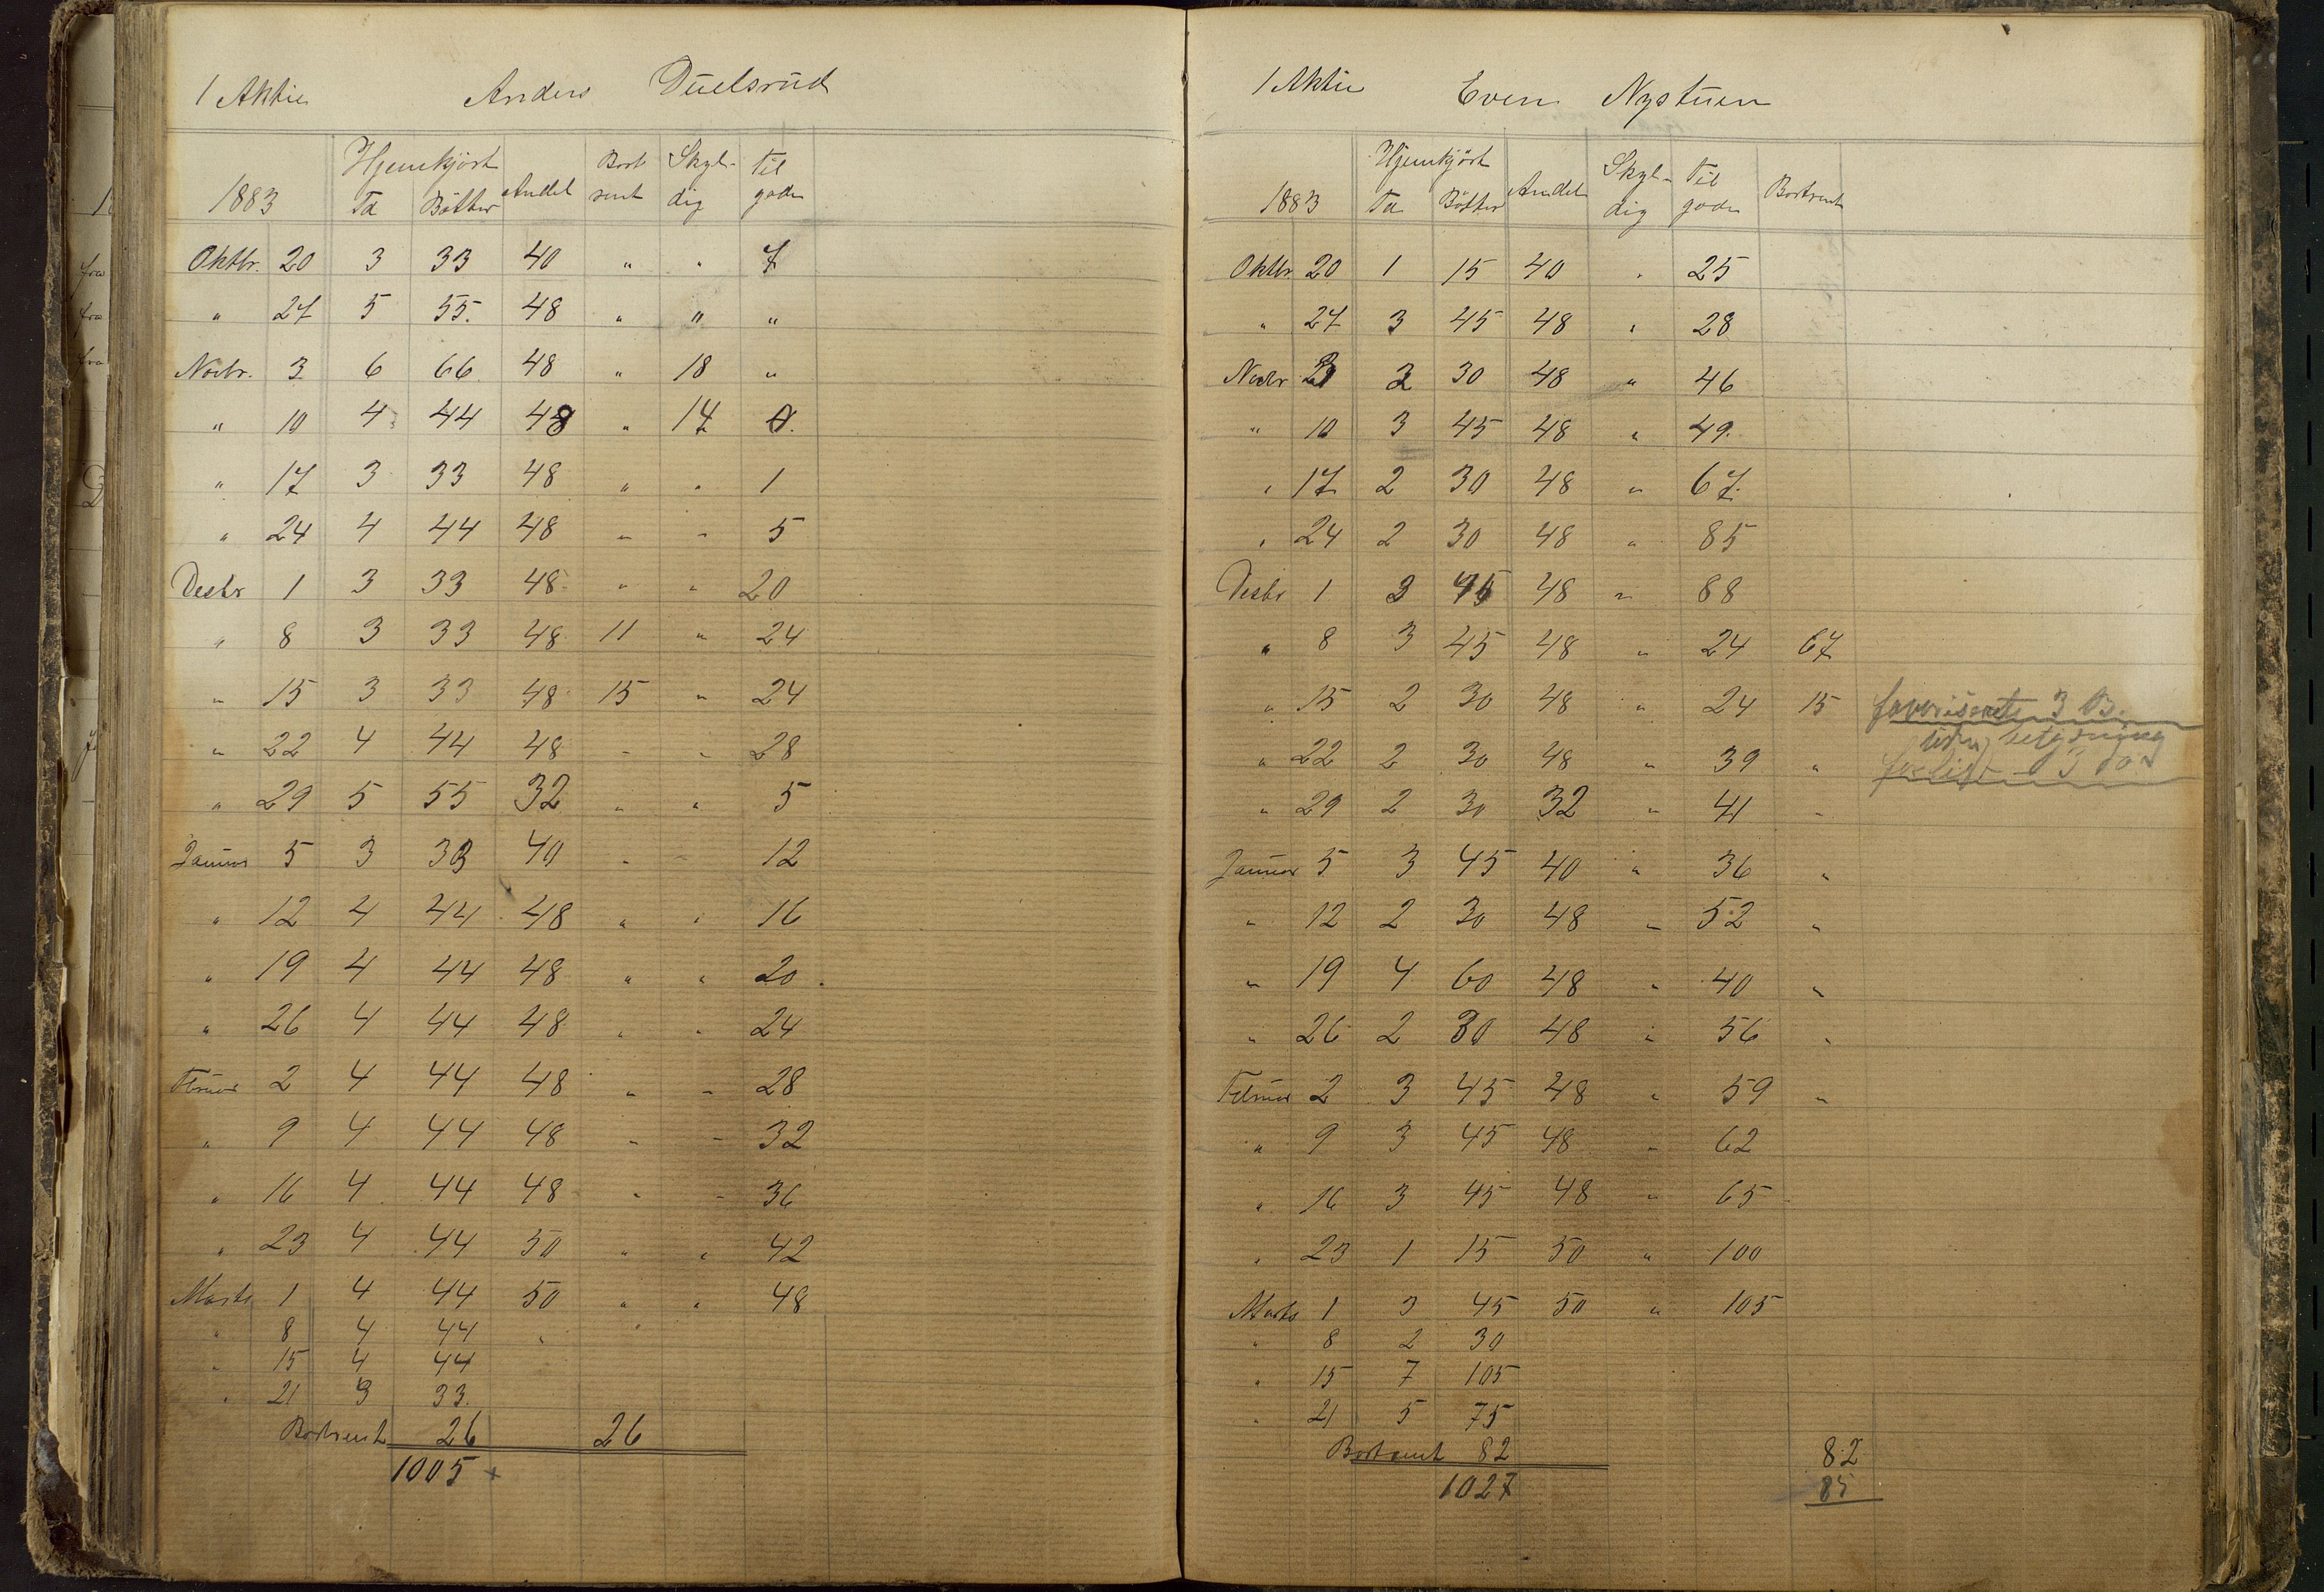 1 Aktie Anders Duelsrud
Hjemkjört Bort Skyl- Til
1883 Td Bötter Andel sent dig gode
Oktbr. 20 3 33 40 " " 7
" 27 5 55. 48 " " "
Novbr. 3 6 66 48 " 18 "
" 10 4 44 48 " 14 0.
" 17 3 33 48 " " 1
" 24 4 44 48 " " 5
Desbr 1 3 33 48 " " 20
" 8 3 33 48 11 " 24
" 15 3 33 48 15 " 24
" 22 4 44 48 " " 28
" 29 5 55 32 " " 5
Januar 5 3 33 40 " " 12
" 12 4 44 48 " " 16
" 19 4 44 48 " " 20.
" 26 4 44 48 " " 24
Februar 2 4 44 48 " " 28
" 9 4 44 48 " " 32
" 16 4 44 48 " " 36
" 23 4 44 50 " " 42
Marts 1 4 44 50 " " 48
" 8 4 44 " "
" 15 4 44
" 21 3 33.
Bortsent 26 26
1005 +
1 Aktie Even Nystuen
Hjemkjört Skyl- Til
1883 Td Bötter Andel dig gode Bortsent
Oktbr. 20 1 15 40 " 25
" 27 3 45 48 " 28
Novbr 3 2 30 48 " 46
" 10 3 45 48 " 49.
" 17 2 30 48 " 67.
" 24 2 30 48 " 85
Desbr 1 3 45 48 " 88
" 8 3 45 48 " 24 67
" 15 2 30 48 " 24 15 3 B.
" 22 2 30 48 " 39 "
" 29 2 30 32 " 41 "
Januar 5 3 45 40 " 36 "
" 12 2 30 48 " 52 "
" 19 4 60 48 " 40 "
" 26 2 30 48 " 56 "
Februar 2 3 45 48 " 59 "
" 9 3 45 48 " 62
" 16 3 45 48 " 65
" 23 1 15 50 " 100
Marts 1 3 45 50 " 105
" 8 2 30
" 15 7 105
" 21 5 75
Bortsent 82 82
1027 85